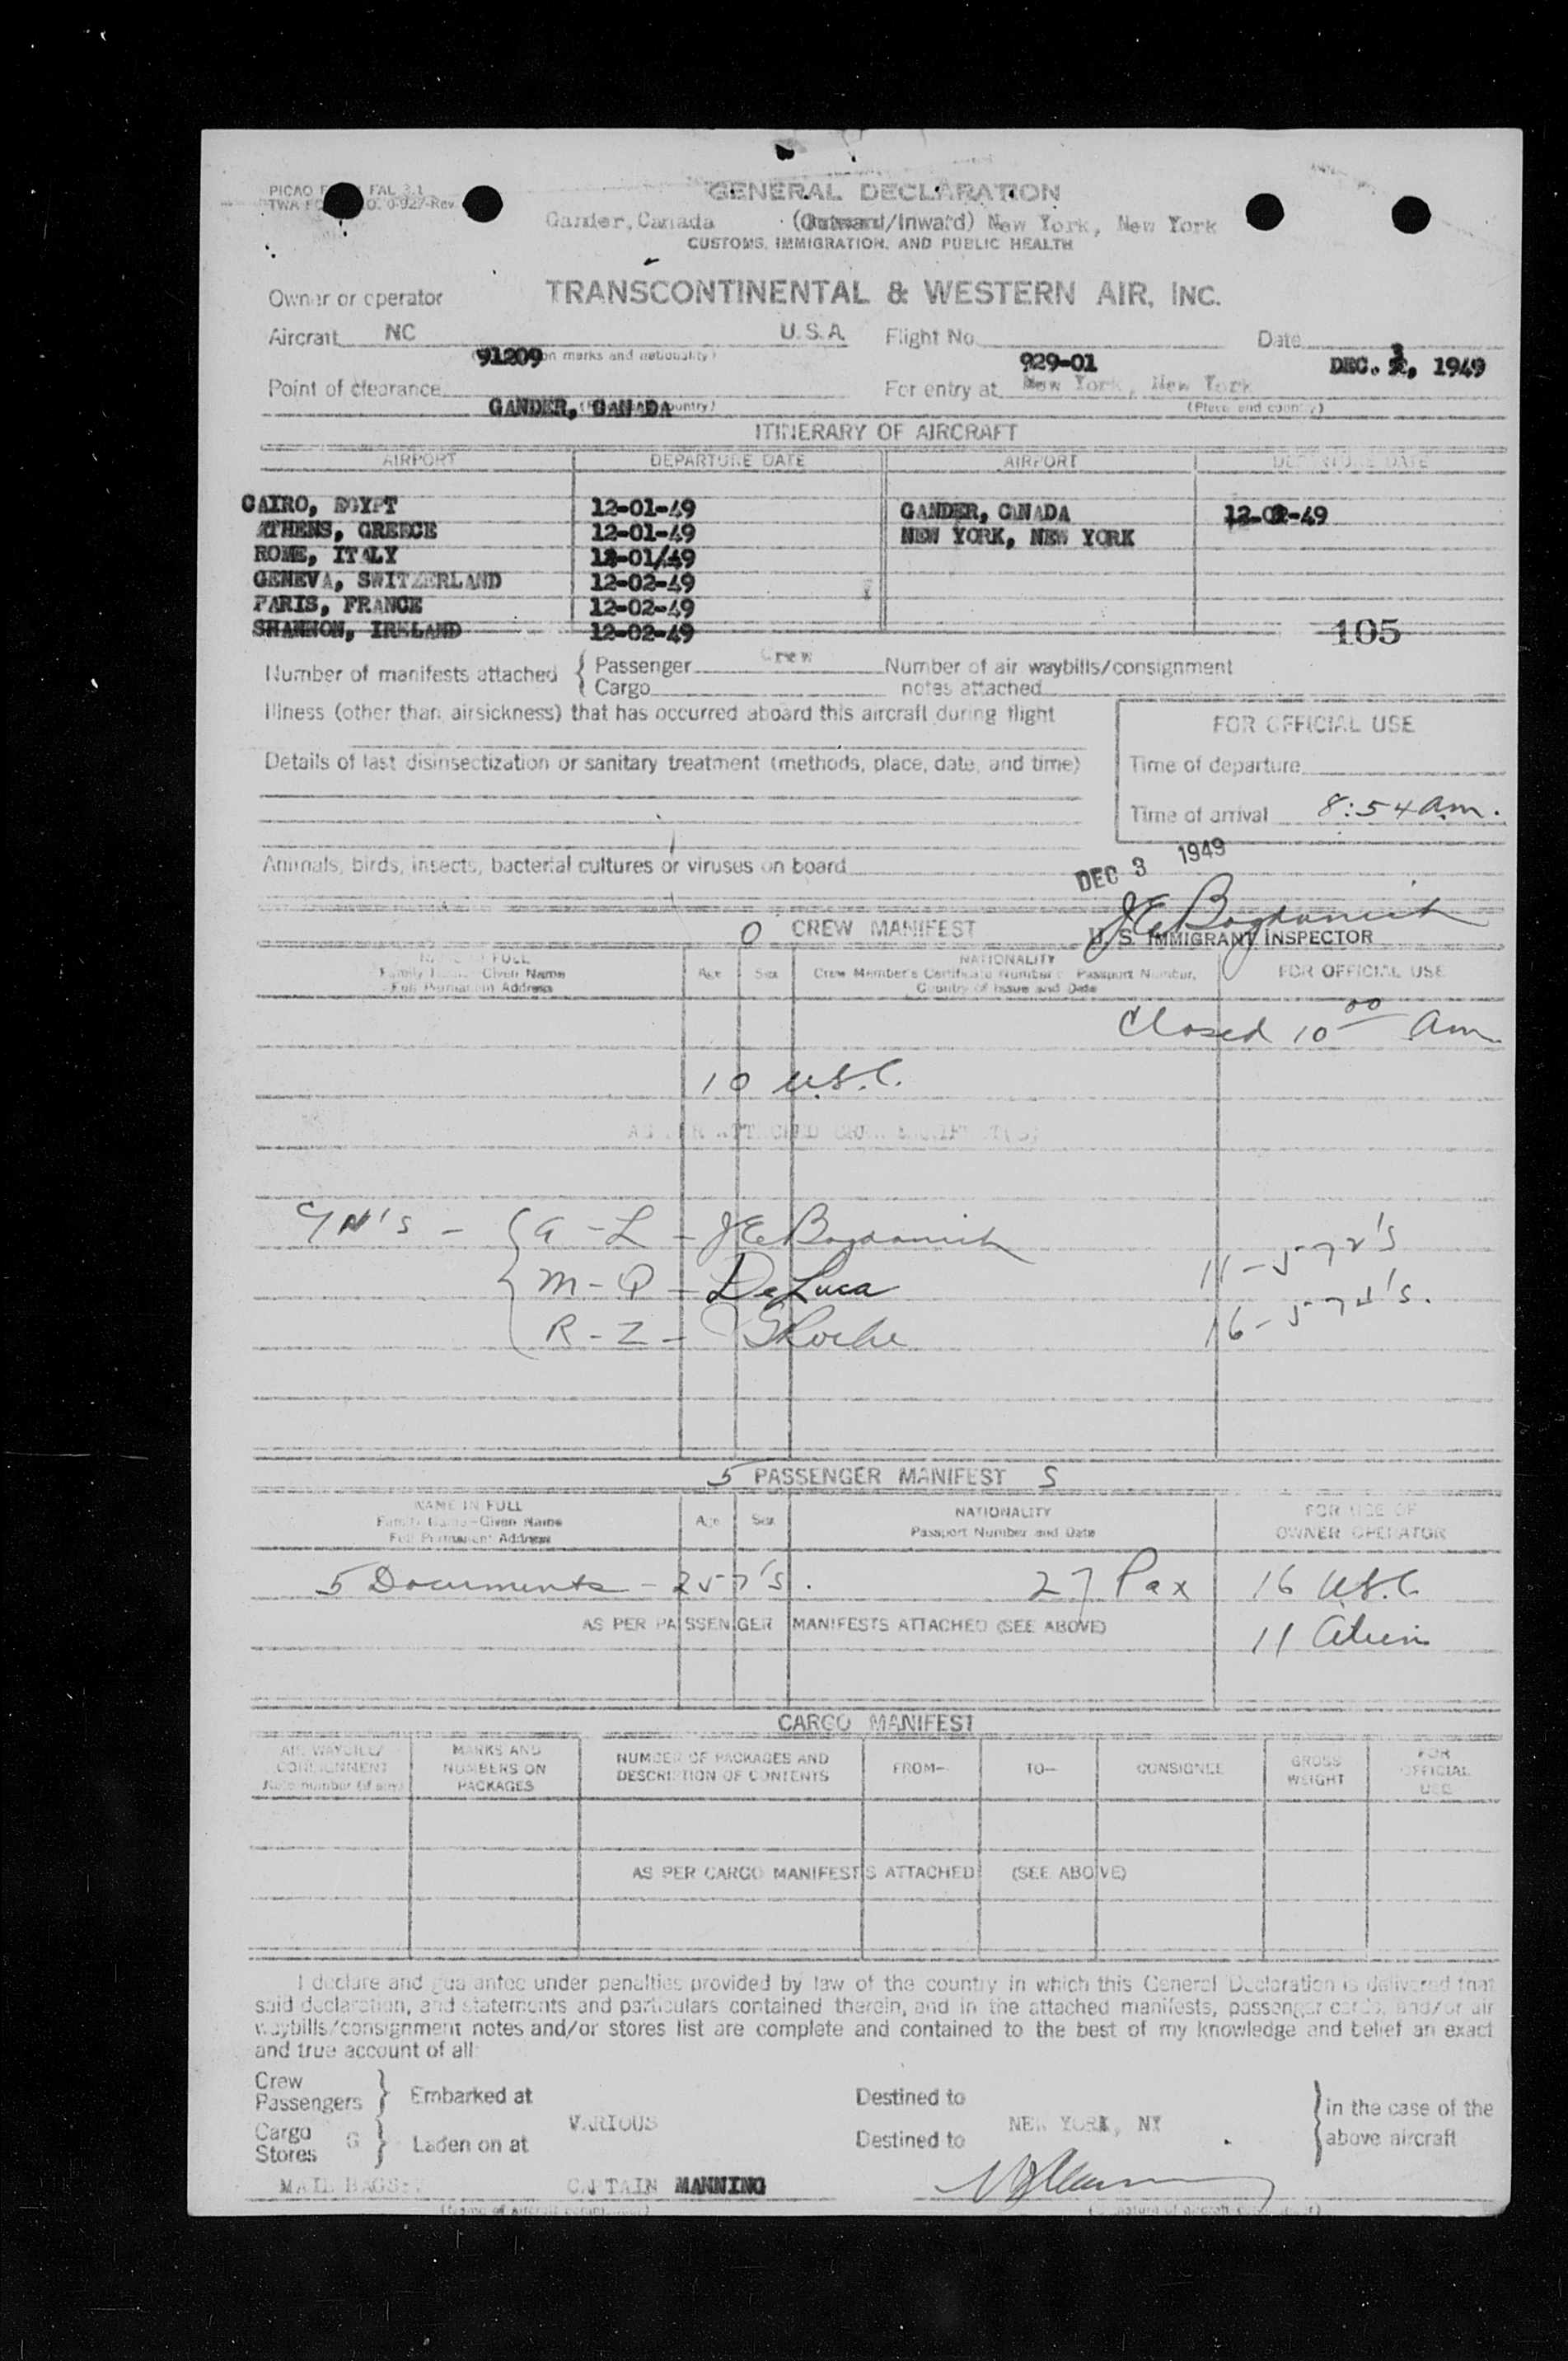 GENERAL DECLARATION
Gander, Canada (Outward/Inward) New York, New York
CUSTOMS, IMMIGRATION, AND PUBLIC HEALTH
Owner or operator TRANSCONTINENTAL & WESTERN AIR, INC.
Aircraft NC 91209 U.S.A. Flight No. 929-01 Date DEC. 3, 1949
Point of clearance GANDER, CANADA For entry at New York, New York
(Place and country)
ITINERARY OF AIRCRAFT
AIRPORT DEPARTURE DATE AIRPORT DEPARTURE DATE
CAIRO, EGYPT 12-01-49 GANDER, CANADA 12-02-49
ATHENS, GREECE 12-01-49 NEW YORK, NEW YORK
ROME, ITALY 12-01/49
GENEVA, SWITZERLAND 12-02-49
PARIS, FRANCE 12-02-49
SHANNON, IRELAND 12-02-49 105
Number of manifests attached { Passenger Crew Number of air waybills/consignment
Cargo notes attached
Illness (other than airsickness) that has occurred aboard this aircraft during flight
FOR OFFICIAL USE
Details of last disinsectization or sanitary treatment (methods, place, date, and time)
Time of departure
Time of arrival 8:54 am.
Animals, birds, insects, bacterial cultures or viruses on board
DEC 3 1949
J E Bogdanich
U. S. IMMIGRANT INSPECTOR
0 CREW MANIFEST
NAME IN FULL
Family Name-Given Name
Full Permanent Address
Age Sex
NATIONALITY
Crew Member's Certificate Number Passport Number,
Country of Issue and Date
FOR OFFICIAL USE
Closed 10 00 am
10 U.S.C.
AS PER ATTACHED CREW MANIFEST(S)
A - L - J E Bogdanich
M - Q - DeLuca
R - Z -
5 PASSENGER MANIFEST S
NAME IN FULL
Family Name-Given Name
Full Permanent Address
Age Sex
NATIONALITY
Passport Number and Date
FOR USE OF
OWNER OPERATOR
5 Documents - 257's. 27 Pax 16 U.S.C.
AS PER PASSENGER MANIFESTS ATTACHED (SEE ABOVE)
11 Alien
CARGO MANIFEST
AIR WAYBILL/
CONSIGNMENT
Note number (if any)
MARKS AND
NUMBERS ON
PACKAGES
NUMBER OF PACKAGES AND
DESCRIPTION OF CONTENTS
FROM—
TO—
CONSIGNEE
GROSS
WEIGHT
FOR
OFFICIAL
USE
AS PER CARGO MANIFESTS ATTACHED (SEE ABOVE)
I declare and guarantee under penalties provided by law of the country in which this General Declaration is delivered that
said declaration, and statements and particulars contained therein, and in the attached manifests, passenger cards, and/or air
waybills/consignment notes and/or stores list are complete and contained to the best of my knowledge and belief an exact
and true account of all:
Crew
Passengers } Embarked at Destined to
VARIOUS NEW YORK, NY
Cargo
Stores G } Laden on at Destined to
} in the case of the
above aircraft
MAIL BAGS: CAPTAIN MANNING